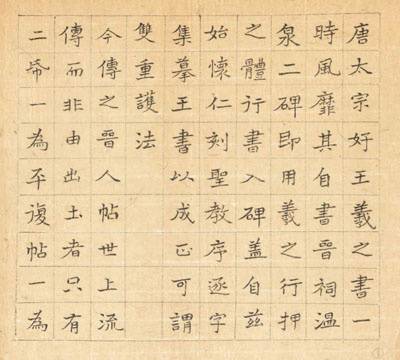 唐太宗好王羲之書一
時風靡其自書晉祠溫
泉二碑即用羲之行押
之體行書入碑蓋自茲
始懷仁刻聖教序逐字
集摹王書以成正可謂
雙重護法
今傳之晉人帖世上流
傳而非由出土者只有
二帋一為平復帖一為